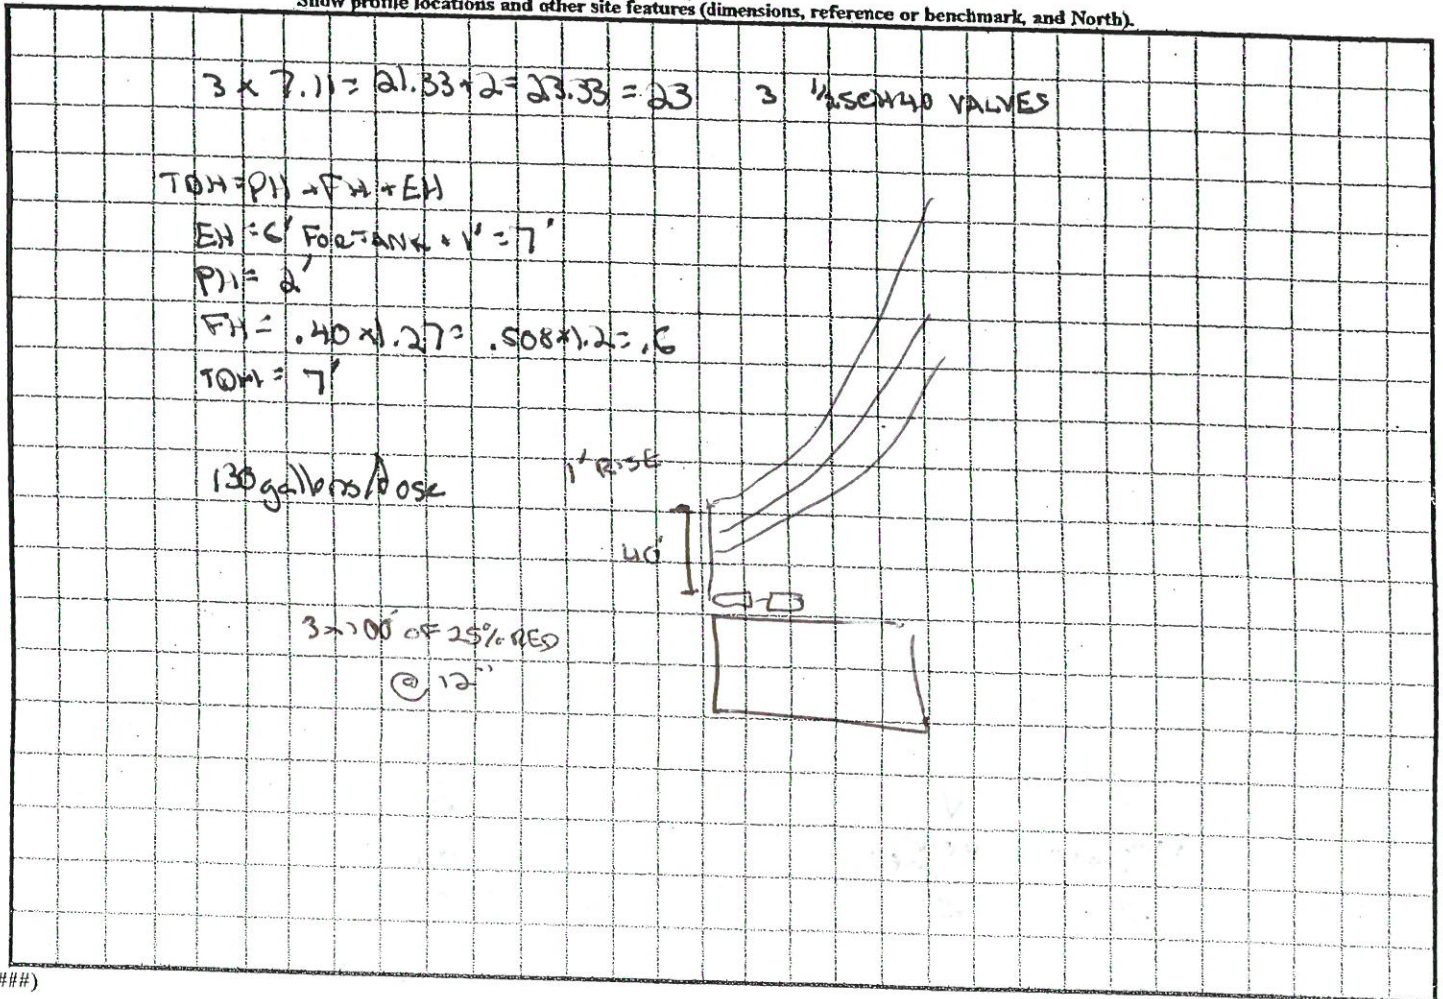 Show profile locations and other site features (dimensions, reference or benchmark, and North).
3 x 7.11 = 21.33 + 2 = 23.33 = 23 3 1/2 SCH40 VALVES
TDH = PH + FH + EH
EH = 6' FOR TANK + 1' = 7'
PH = 2'
FH = .40 x 1.27 = .508 x 1.2 = .6
TDH = 7'
1' RISE
gallons/dose
40'
OF 25% RED
@ 12"
###)